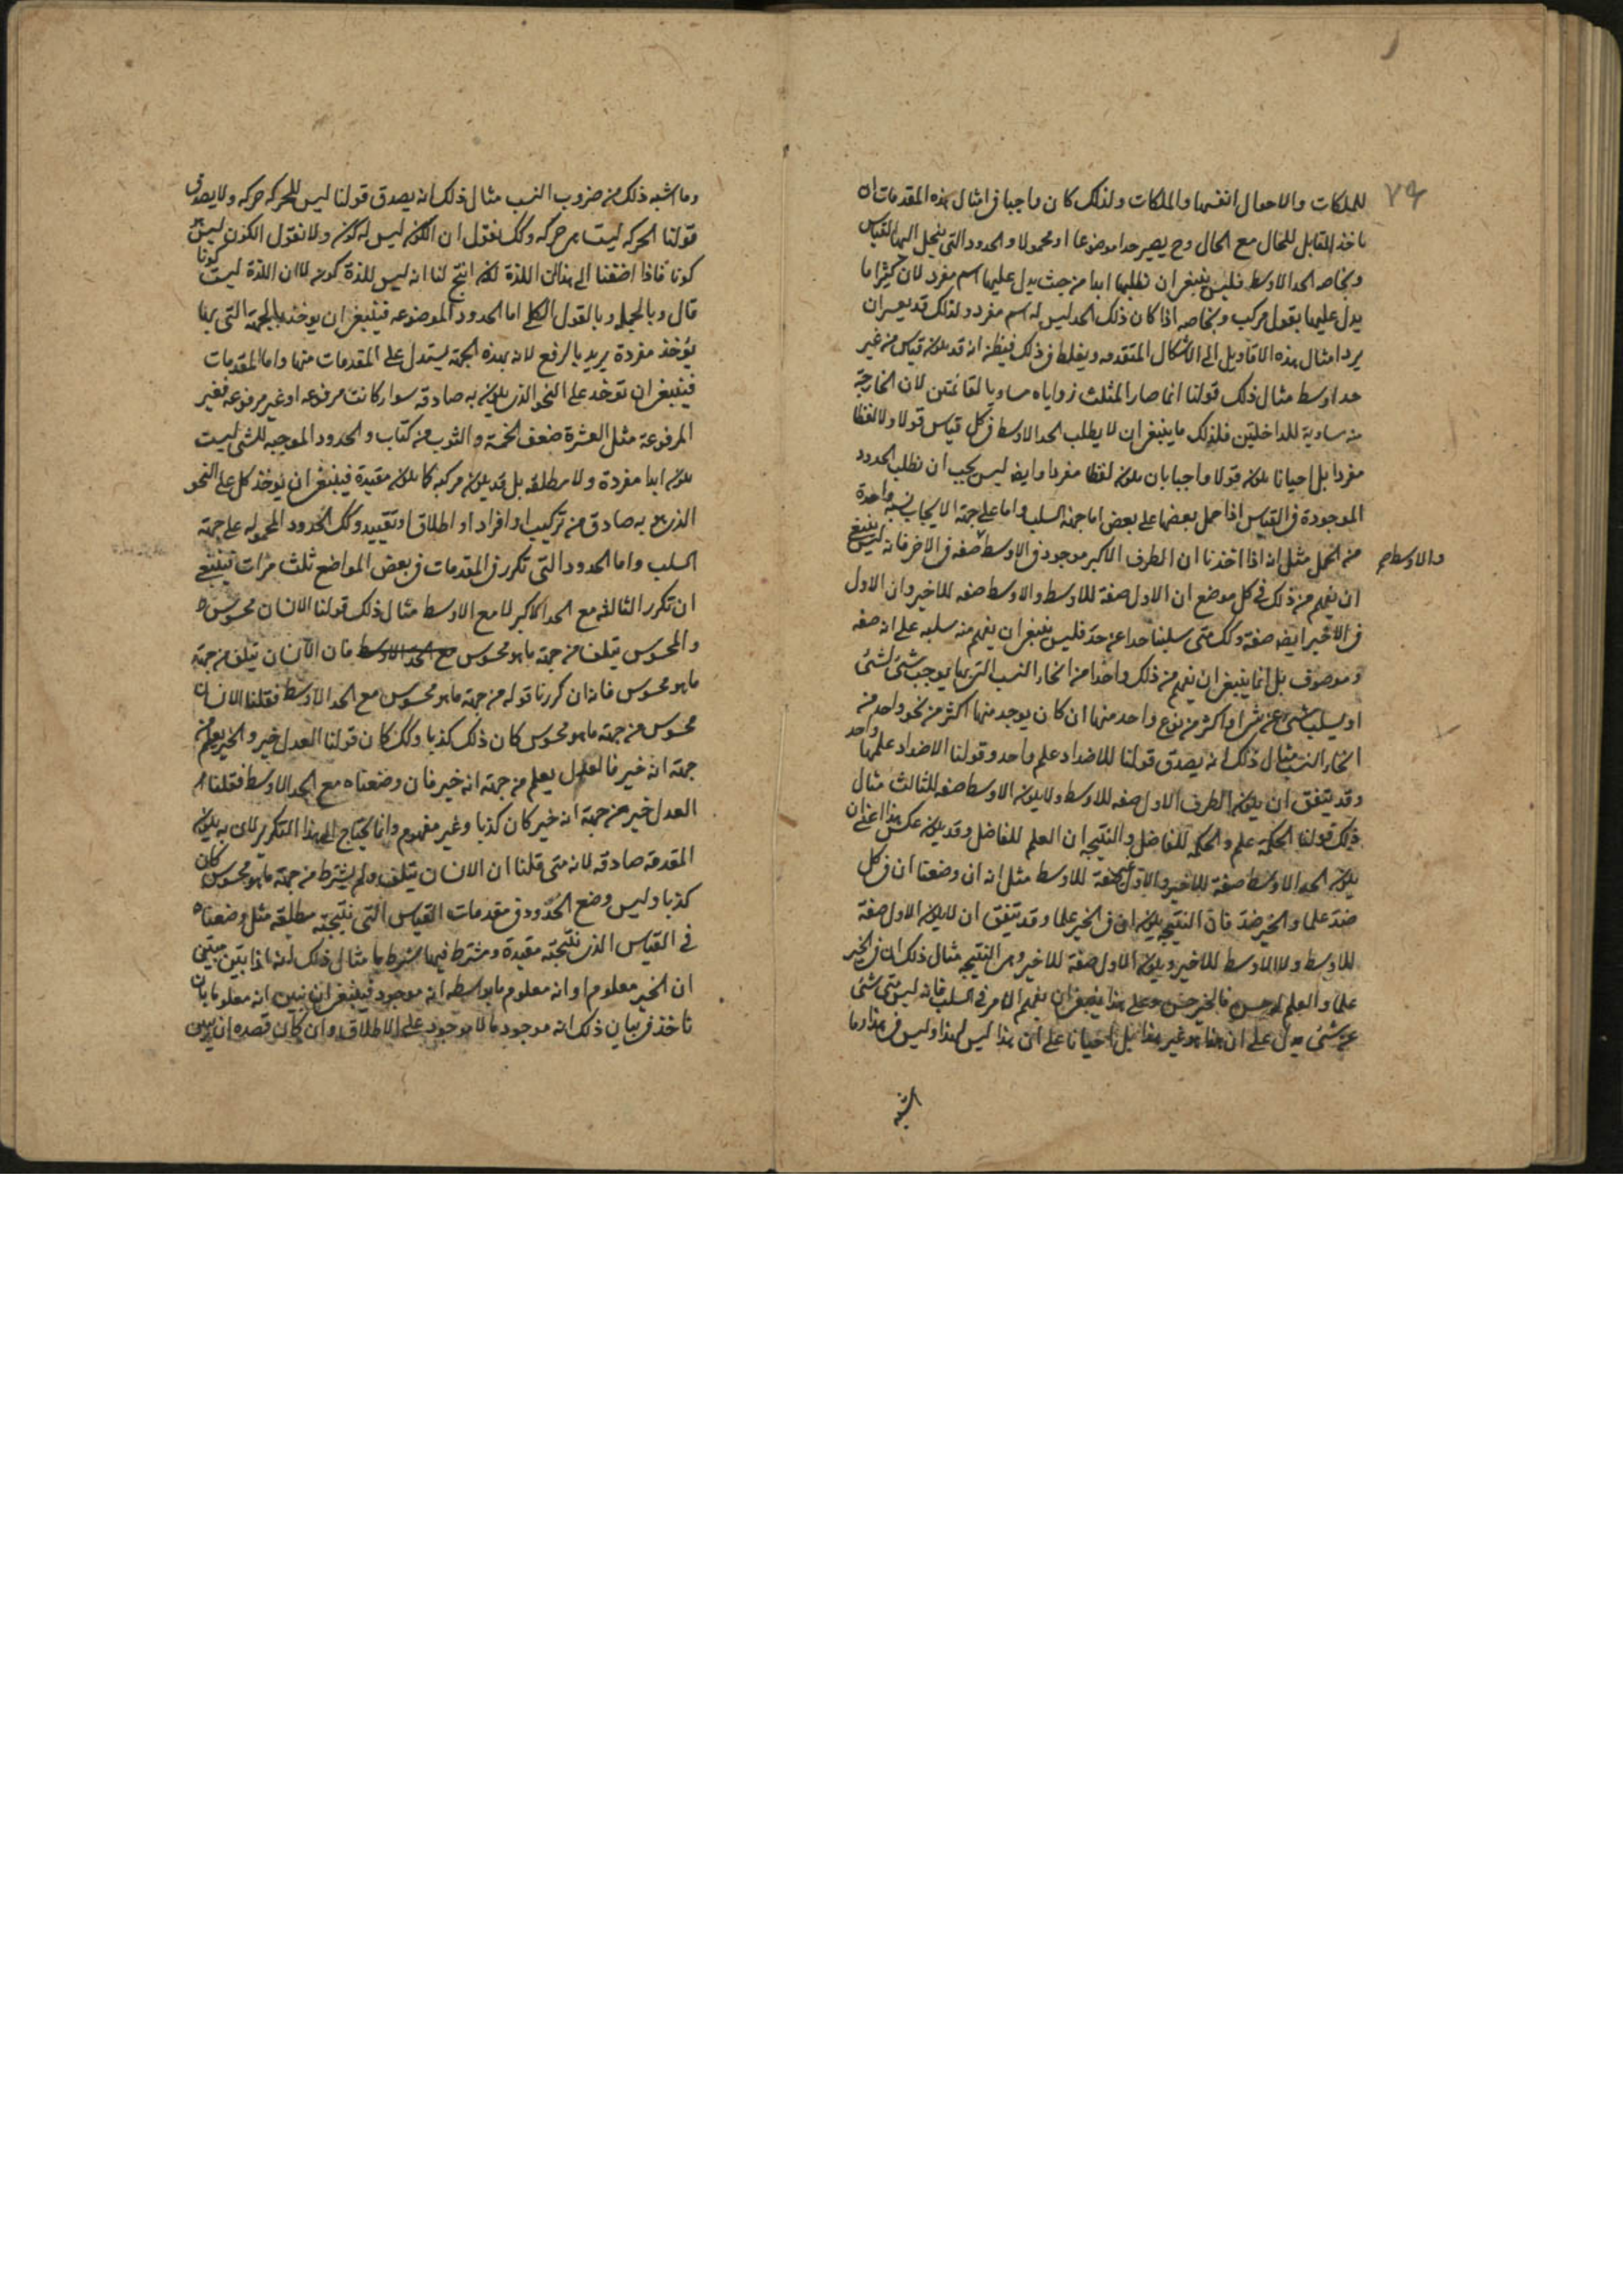 ٧٩
للملكات والاحوال انفسها والملكات ولذلك كان واجبا فى امثال هذه المقدمات ان
ناخذ المقابل للحال مع الحال وح يصير حدا موضوعا او محمولا والحدود التى ينحل اليها القياس
وبخاصه الحد الاوسط فليس ينبغى ان نطلبها ابدا من حيث يدل عليها اسم مفرد لان كثيرا ما
يدل عليها بقول مركب وبخاصه اذا كان ذلك الحد ليس له اسم مفرد ولذلك قد يعسر ان
يرد امثال هذه الاقاويل الى الاشكال المتقدمه ويغلط فى ذلك فيظن انه قد يكون قياس من غير
حد اوسط مثال ذلك قولنا انما صار المثلث زواياه مساويا لقائمتين لان الخارجة
منه مساوية للداخلتين فلذلك ما ينبغى ان لا يطلب الحد الاوسط فى كل قياس قولا ولا لفظا
مفردا بل احيانا يكون قولا واجبا بان يكون لفظا مفردا وايض ليس يجب ان نطلب الحدود
الموجودة فى القياس اذا حمل بعضها على بعض اما جهة السلب واما على جهة الايجاب نسبة واحدة
من الحمل مثل انه اذا اخذنا ان الطرف الاكبر موجود فى الاوسط صفه فى الاخر فانه ليس ينبغى
والاوسط
ان يفهم من ذلك فى كل موضع ان الاول صفة للاوسط والاوسط صفه للاخير وان الاول
فى الاخير ايض صفة وكك متى سلبنا حدا عن حد فليس ينبغى ان يفهم منه سلبه على انه صفه
وموصوف بل انما ينبغى ان يفهم من ذلك واحدا من انحاء النسب التى بها يوجب شئ لشئ
او يسلب شئ عن شئ او اكثر من نوع واحد منها ان كان يوجد منها اكثر من نحو واحد من
انحاء النسب مثال ذلك انه يصدق قولنا للاضداد علم واحد وقولنا الاضداد علمها واحد
وقد يتفق ان يكون الطرف الاول صفه للاوسط ولا يكون الاوسط صفه للثالث مثال
ذلك قولنا الحكمة علم والحكمة للفاضل والنتيجه ان العلم للفاضل وقد يكون عكس هذا اعنى ان
يكون الحد الاوسط صفة للاخير والاول غير صفة للاوسط مثل انه ان وضعنا ان فى كل
ضد علما والخير ضد فان النتيجه يكون ان فى الخير علما وقد يتفق ان لا يكون الاول صفة
للاوسط ولا الاوسط للاخير ويكون الاول صفة للاخير وهى النتيجه مثال ذلك ان فى الخير
علما والعلم له حسن فالخير حسن وعلى هذا ينبغى ان يفهم الامر فى السلب فانه ليس متى شئ
عن شئ يدل على ان هذا هو غير هذا بل احيانا على ان هذا ليس لهذا وليس فى هذا وما
اشبه
وما اشبه ذلك من ضروب النسب مثال ذلك انه يصدق قولنا ليس للحركه حركه ولا يصدق
قولنا الحركه ليست هى حركه وكك نقول ان الكون ليس له كون ولا نقول الكون ليس هو
كونا فاذا اضفنا الى هذا ان اللذة كون انتج لنا انه ليس للذة كون لا ان اللذة ليست كونا
قال وبالجمله وبالقول الكلى اما الحدود الموضوعه فينبغى ان يوخذ بالجهة التى بها
يؤخذ مفردة يريد بالرفع لانه بهذه الجهة يستدل على المقدمات منها واما المقدمات
فينبغى ان توخذ على النحو الذى يكون به صادقه سواء كانت مرفوعه او غير مرفوعه فغير
المرفوعة مثل العشرة ضعف الخمسة والثوب من كتاب والحدود الموجبه للشئ ليست
يكون ابدا مفردة ولا مطلقه بل قد يكون مركبه كما يكون مقيدة فينبغى ان يوخذ كل على النحو
الذى هو به صادق من تركيب او افراد او اطلاق او تقييد وكك الحدود المحموله على جهة
السلب واما الحدود التى تكرر فى المقدمات فى بعض المواضع ثلث مرات فينبغى
ان تكرر الثالثه مع الحد الاكبر لا مع الاوسط مثال ذلك قولنا الانسان محسوس
والمحسوس يتلف من جهة ما هو محسوس مع الحد الاوسط فان الانسان يتلف من جهة
ما هو محسوس فانه ان كررنا قوله من جهة ما هو محسوس مع الحد الاوسط فقلنا الانسان
محسوس من جهة ما هو محسوس كان ذلك كذبا وكك كان قولنا العدل خير والخير يعلم من
جهة انه خير فالعدل يعلم من جهة انه خير فان وضعناه مع الحد الاوسط فقلنا
العدل خير من جهة انه خير كان كذبا وغير مفهوم وانما يحتاج الى هذا المتكرر لان به يكون
المقدمة صادقه لانه متى قلنا ان الانسان يتلف ولم يشترط من جهة ما هو محسوس كان
كذبا وليس وضع الحدود فى مقدمات القياس التى نتيجته مطلقة مثل وضعناه
فى القياس الذى نتيجته مقيدة ومشترط فيها شرط ما مثال ذلك انه اذا تبين
ان الخير معلوم او انه معلوم ما بواسطه انه موجود فينبغى ان نبين انه معلوم ما بان
ناخذ فى بيان ذلك انه موجود ما لا موجود على الاطلاق وان كان قصده ان يبين